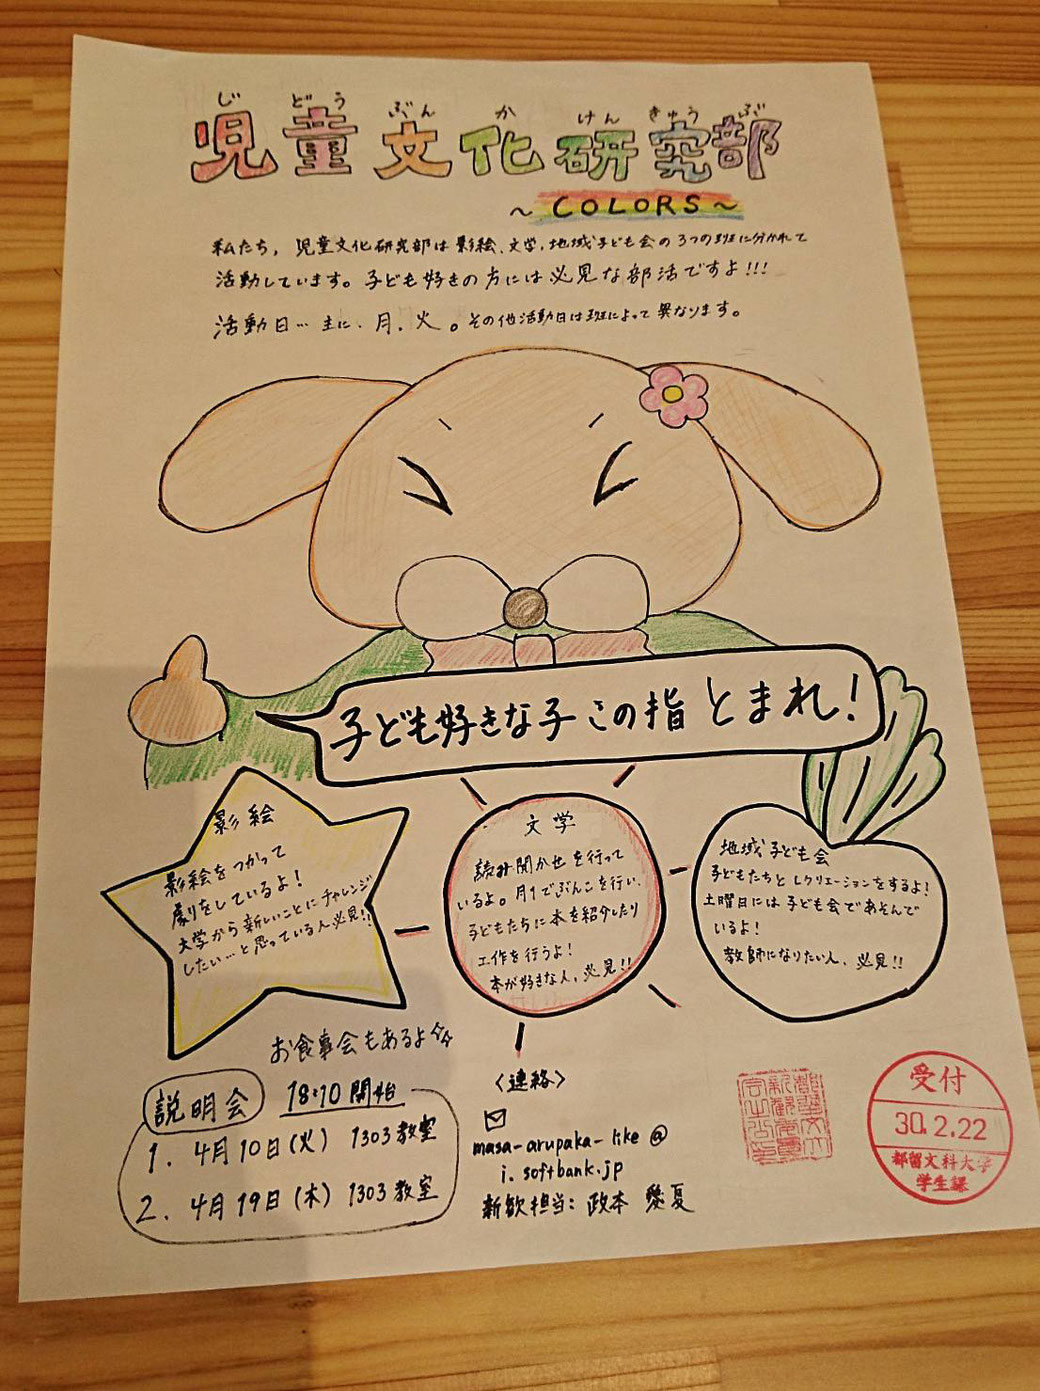 じどうぶんかけんきゅうぶ
児童文化研究部
～COLORS～
私たち，児童文化研究部は影絵、文学、地域子ども会の3つの班に分かれて
活動しています。子ども好きの方には必見な部活ですよ!!!
活動日…主に、月、火。その他活動日は班によって異なります。
子ども好きな子この指とまれ!
影絵
影絵をつかって
劇りをしているよ!
大学から新しいことにチャレンジ
したい…と思っている人必見!!
文学
読み聞かせを行って
いるよ。月1でぶんこを行い、
子どもたちに本を紹介したり
工作を行うよ!
本が好きな人、必見!!
地域子ども会
子どもたちとレクリエーションをするよ!
土曜日には子ども会であそんで
いるよ!
教師になりたい人、必見!!
お食事会もあるよ
説明会 18:10開始
1. 4月10日(火) 1303教室
2. 4月19日(木) 1303教室
〈連絡〉
masa-arupaka-like@
i.softbank.jp
新歓担当：政本 愛夏
受付
30.2.22
都留文科大学
学生課